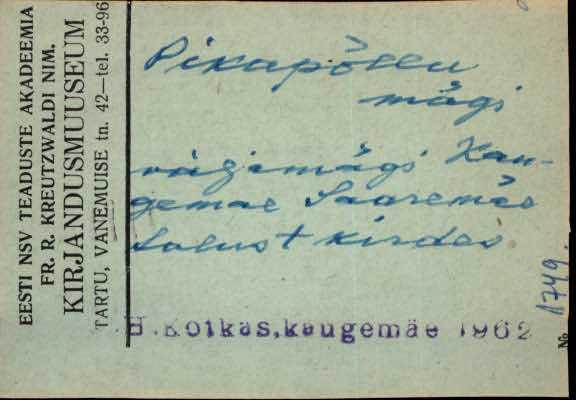 EESTI NSV TEADUSTE AKADEEMIA
FR. R. KREUTZWALDI NIM.
KIRJANDUSMUUSEUM
TARTU, VANEMUISE tn. 42—tel. 33-96
Pikapõllu
mägi
mägi Kau-
gemae Saaremäe
talust kirdes
H. Koikas, kaugemäe 1962
№ 1749.